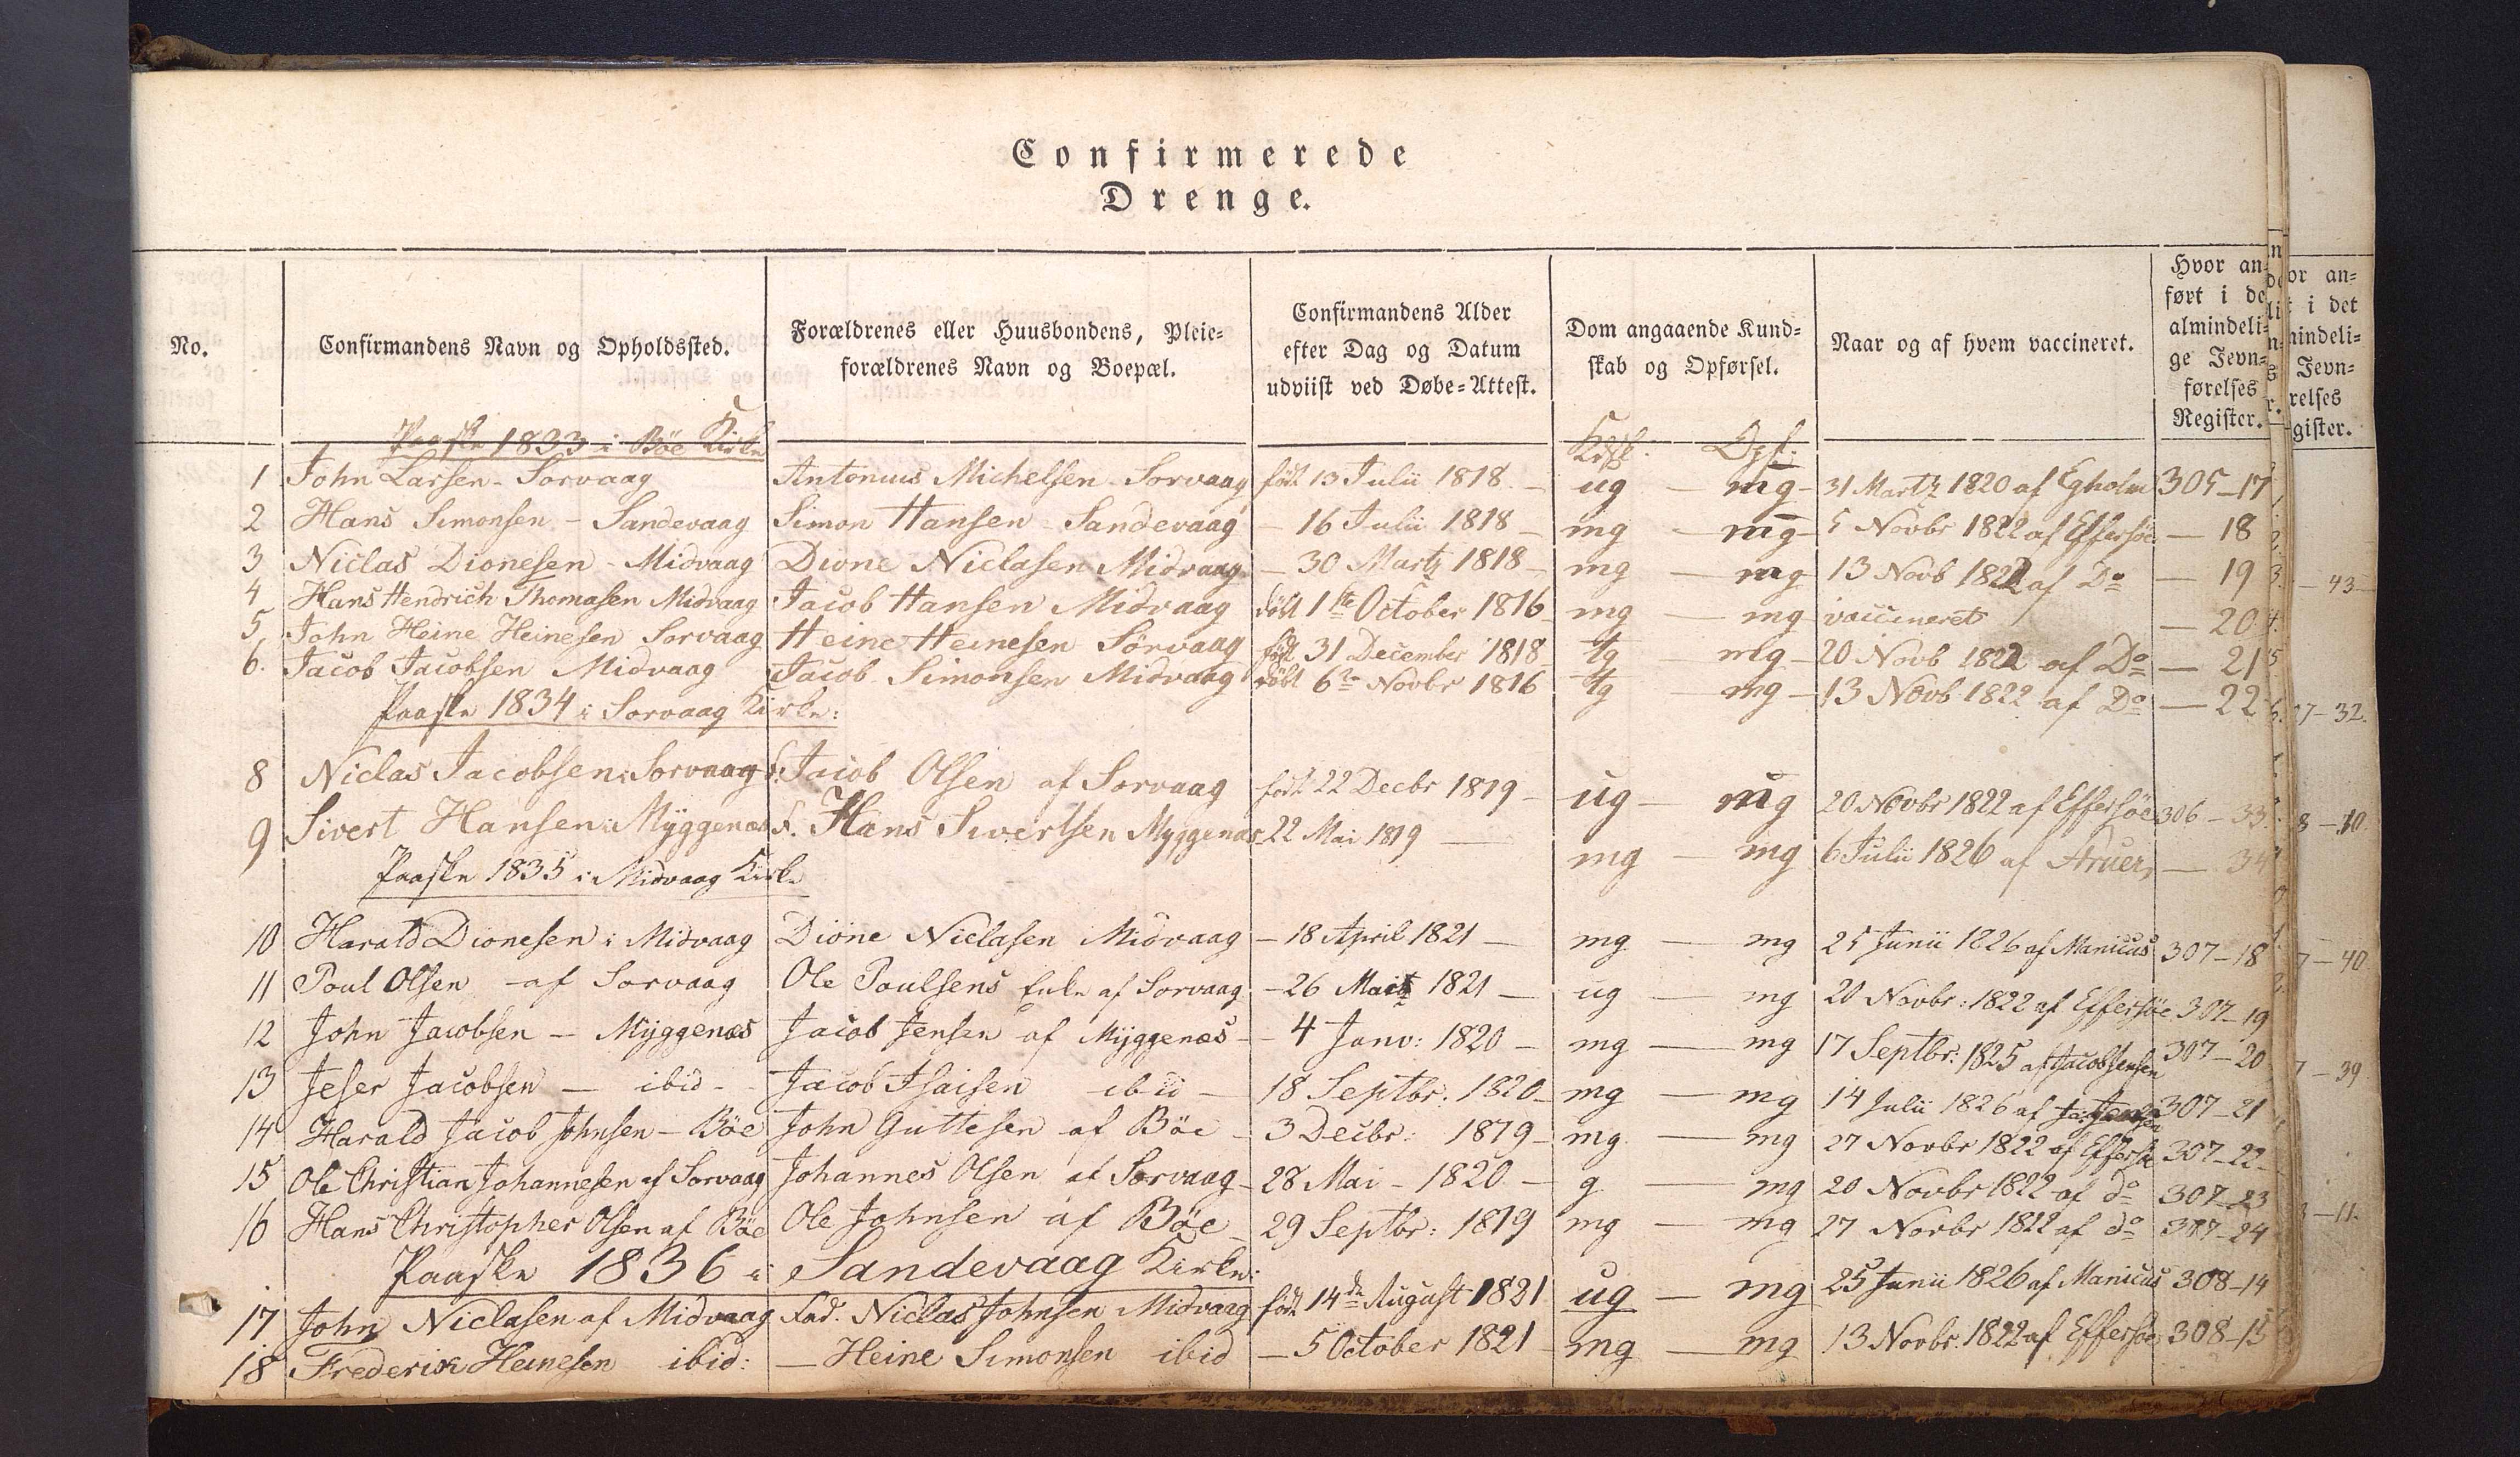 Confirmerede
Drenge.
No.
Confirmandens Navn og Opholdssted.
Forældrenes eller Huusbondens, Pleie-
forældrenes Navn og Boepæl.
Confirmandens Alder
efter Dag og Datum
udviist ved Døbe-Attest.
Dom angaaende Kund-
skab og Opførsel.
Naar og af hvem vaccineret.
Hvor an-
ført i de
almindeli-
ge Jevn-
førelses
Register.
Paaske 1833 i Bøe Kirke
Kdsk. Opf.
1 John Larsen - Sorvaag Antonius Michelsen - Sorvaag født 13 Julii 1818 - ug - mg - 31 Martz 1820 af Egholm 305-17
2 Hans Simonsen - Sandevaag Simon Hansen - Sandevaag - 16 Julii 1818 - mg - mg - 5 Novbr 1822 af Effersøe - 18
3 Niclas Dionesen - Midvaag Dione Niclasen Midvaag - 30 Martz 1818 - mg - mg 13 Novb 1822 af Do - 19
4 Hans Hendrich Thomasen Midvaag Jacob Hansen Midvaag døbt 1ste October 1816 mg - mg vaccineret - 20
5. John Heine Heinesen Sorvaag Heine Heinesen Sørvaag født 31 December 1818 tg - mg - 20 Novb 1822 af Do - 21
6. Jacob Jacobsen Midvaag Jacob Simonsen Midvaag døbt 6te Novbr 1816 tg - mg - 13 Novb 1822 af Do - 22
Paaske 1834 i Sorvaag Kirke:
8 Niclas Jacobsen i Sorvaag F. Jacob Olsen af Sorvaag født 22 Decbr 1819 - ug - mg 20 Novbr 1822 af Effersøe 306-33
9 Sivert Hansen i Myggenæs F. Hans Sivertsen Myggenæs - 22 Mai 1819 - mg - mg 6 Julii 1826 af - 34
Paaske 1835 i Midvaag Kirke
10 Harald Dionesen i Midvaag Dione Niclasen Midvaag - 18 April 1821 - mg - mg 25 Junii 1826 af Manicus 307-18
11 Poul Olsen - af Sorvaag Ole Poulsens Enke af Sorvaag - 26 1821 - ug - mg 20 Novbr: 1822 af Effersøe 307-19
12 John Jacobsen - Myggenæs Jacob Jensen af Myggenæs - - 4 Janv: 1820 - mg - mg 17 Septbr: 1825 af Jacob Jensen 307-20
13 Jeser Jacobsen - ibid - Jacob Isaisen ibid - 18 Septbr. 1820 - mg - mg 14 Julii 1826 af Ja: Jensen 307-21
14 Harald Jacob Johnsen - Bøe John Guttesen af Bøe - 3 Decbr: 1819 - mg - mg 27 Novbr 1822 af Effersøe 307-22
15 Ole Christian Johannesen af Sorvaag Johannes Olsen af Sorvaag - 28 Mai - 1820 - g - mg 20 Novbr 1822 af do 307-23
16 Hans Christopher Olsen af Bøe Ole Johnsen af Bøe - 29 Septbr: 1819 mg - mg 27 Novbr 1822 af do 307-24
Paaske 1836 i Sandevaag Kirke:
17 John Niclasen af Midvaag Fad. Niclas Johnsen Midvaag født 14de August 1821 ug - mg 25 Junii 1826 af Manicus 308-14
18 Frederik Heinesen ibid: - Heine Simonsen ibid - 5 October 1821 - mg - mg 13 Novbr. 1822 af Effersøe 308-15
or an-
i det
mindeli-
Jevn-
relses
gister.
- 43
7-32.
8-10.
7-40
7-39
-11.